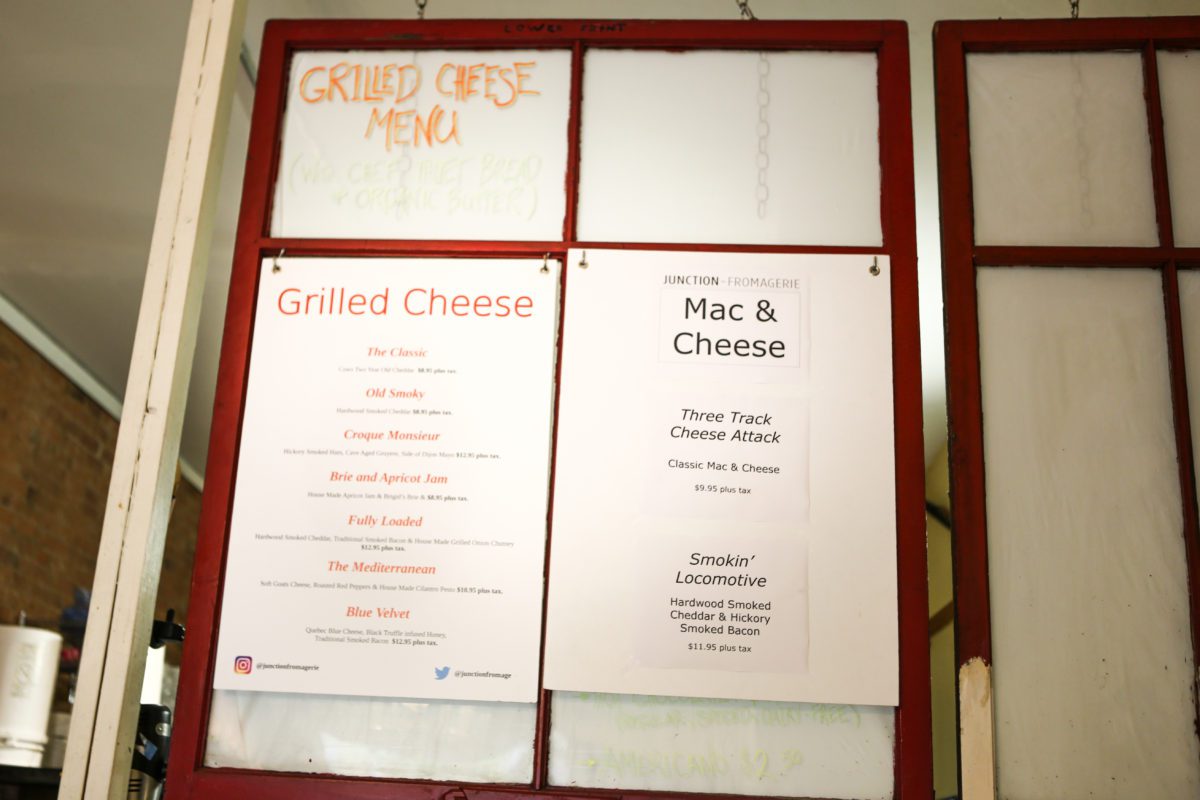 LOWER FRONT
GRILLED CHEESE
MENU
ORGANIC BUTTER)
Grilled Cheese
The Classic
Two Year Old Cheddar $8.95 plus tax.
Old Smoky
Hardwood Smoked Cheddar $8.95 plus tax.
Croque Monsieur
Hickory Smoked Ham, Cave Aged Gruyere, Side of Dijon Mayo $12.95 plus tax.
Brie and Apricot Jam
House Made Apricot Jam & Brigid's Brie & $8.95 plus tax.
Fully Loaded
Hardwood Smoked Cheddar, Traditional Smoked Bacon & House Made Grilled Onion Chutney
$12.95 plus tax.
The Mediterranean
Soft Goats Cheese, Roasted Red Peppers & House Made Cilantro Pesto $10.95 plus tax.
Blue Velvet
Quebec Blue Cheese, Black Truffle infused Honey,
Traditional Smoked Bacon $12.95 plus tax.
@junctionfromagerie
@junctionfromage
JUNCTION-FROMAGERIE
Mac &
Cheese
Three Track
Cheese Attack
Classic Mac & Cheese
$9.95 plus tax
Smokin'
Locomotive
Hardwood Smoked
Cheddar & Hickory
Smoked Bacon
$11.95 plus tax
AMERICANO $2.50